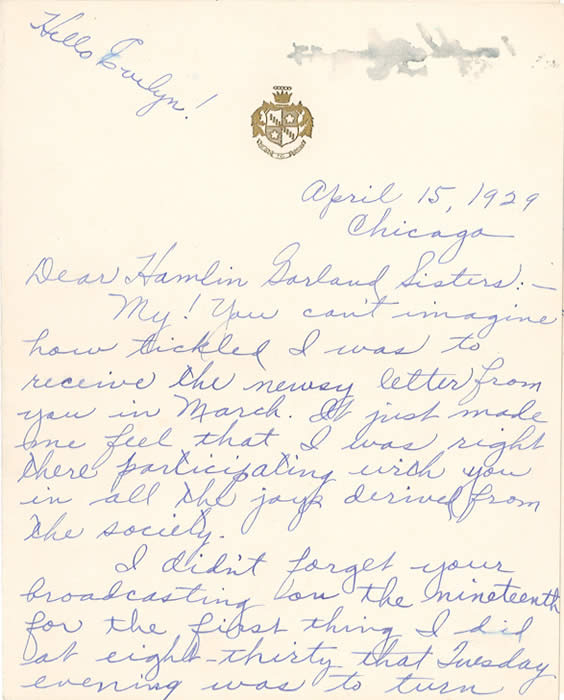 Hello Evelyn!
April 15, 1929
Chicago
Dear Hamlin Garland Sisters:—
My! You can't imagine
how tickled I was to
receive the newsy letter from
you in March. It just made
me feel that I was right
there participating with you
in all the joys derived from
the society.
I didn't forget your
broadcasting on the nineteenth
for the first thing I did
at eight-thirty that Tuesday
evening was to turn